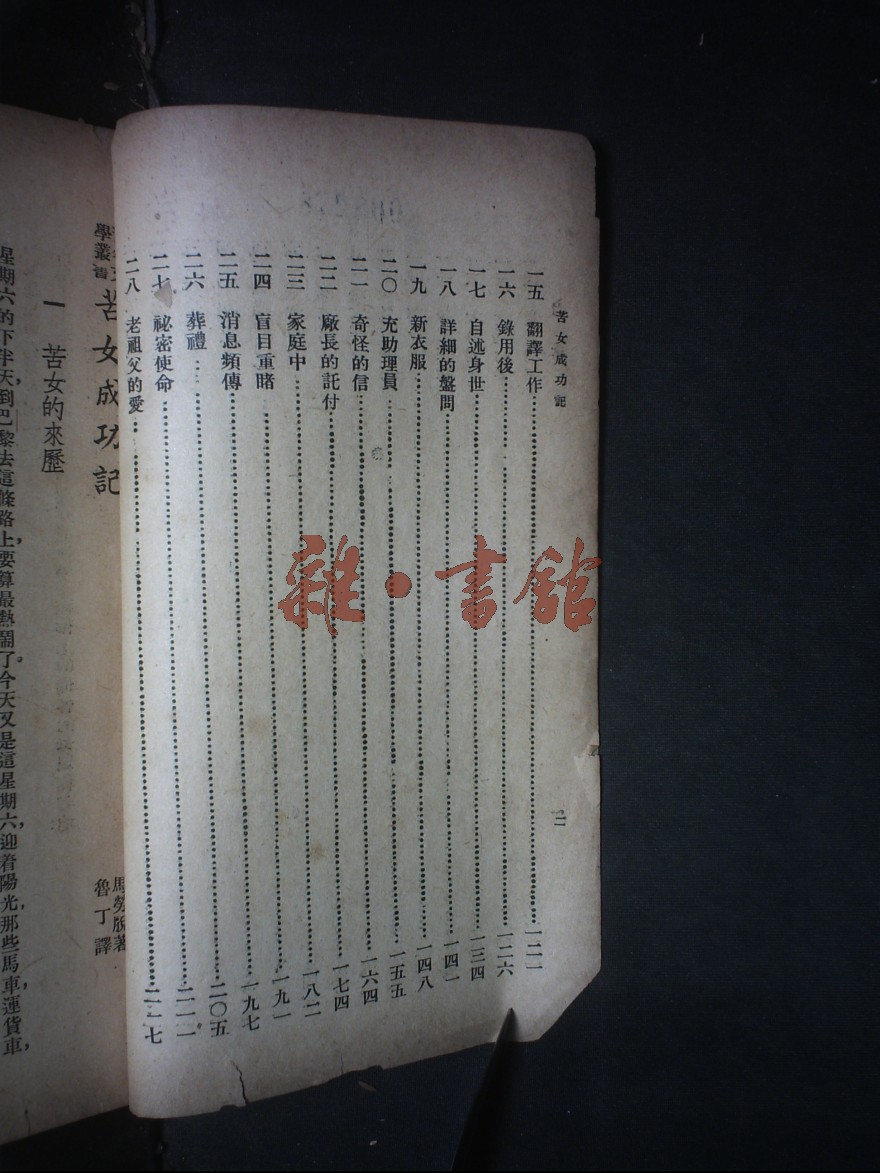 苦女成功記
二
一五 翻譯工作 一二一
一六 錄用後 一二六
一七 自述身世 一三四
一八 詳細的盤問 一四一
一九 新衣服 一四八
二〇 充助理員 一五五
二一 奇怪的信 一六四
二二 廠長的託付 一七四
二三 家庭中 一八二
二四 盲目重睹 一九一
二五 消息頻傳 一九七
二六 葬禮 二〇五
二七 祕密使命 二一一
二八 老祖父的愛 二一七
學叢書
苦女成功記
馬勞脫著
魯丁譯
一 苦女的來歷
星期六的下半天,到巴黎去這條路上,要算最熱鬧了。今天又是這星期六,迎着陽光,那些馬車,運貨車,
雜·書館